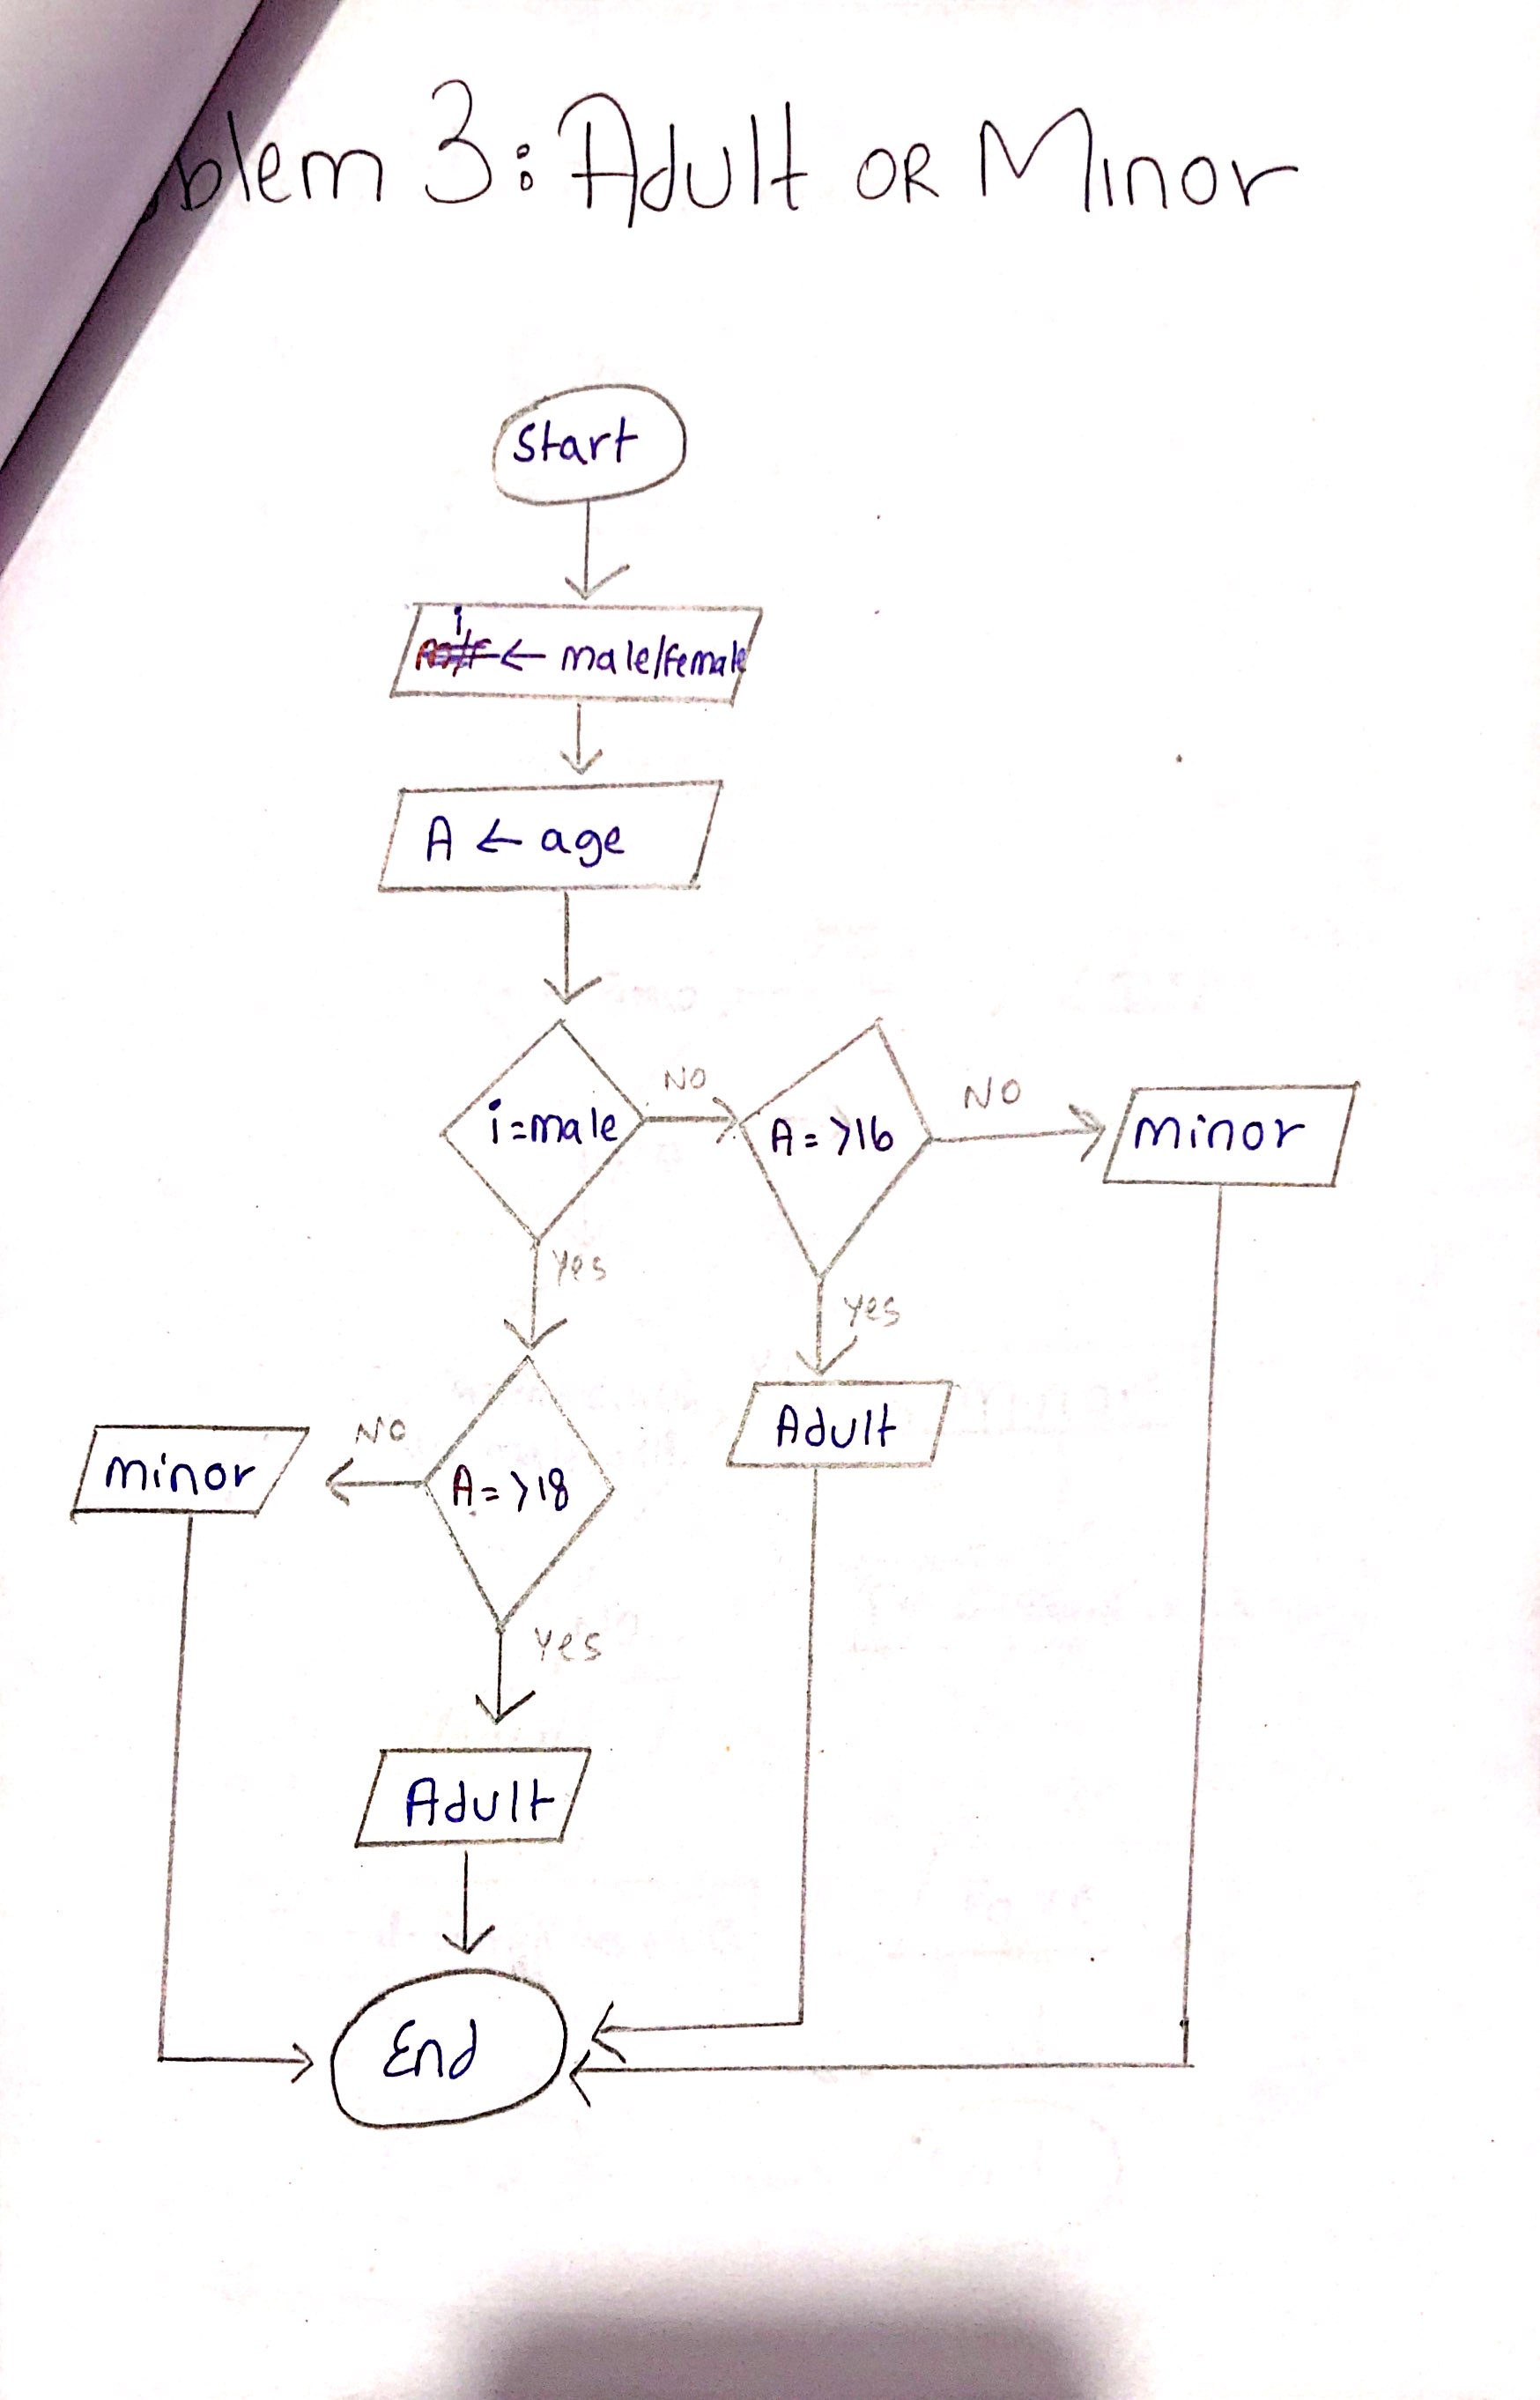 blem 3: Adult OR Minor
Start
i ← male/female
A ← age
i=male
NO
A=>16
NO
minor
Yes
Yes
Adult
minor
NO
A=>18
Yes
Adult
End